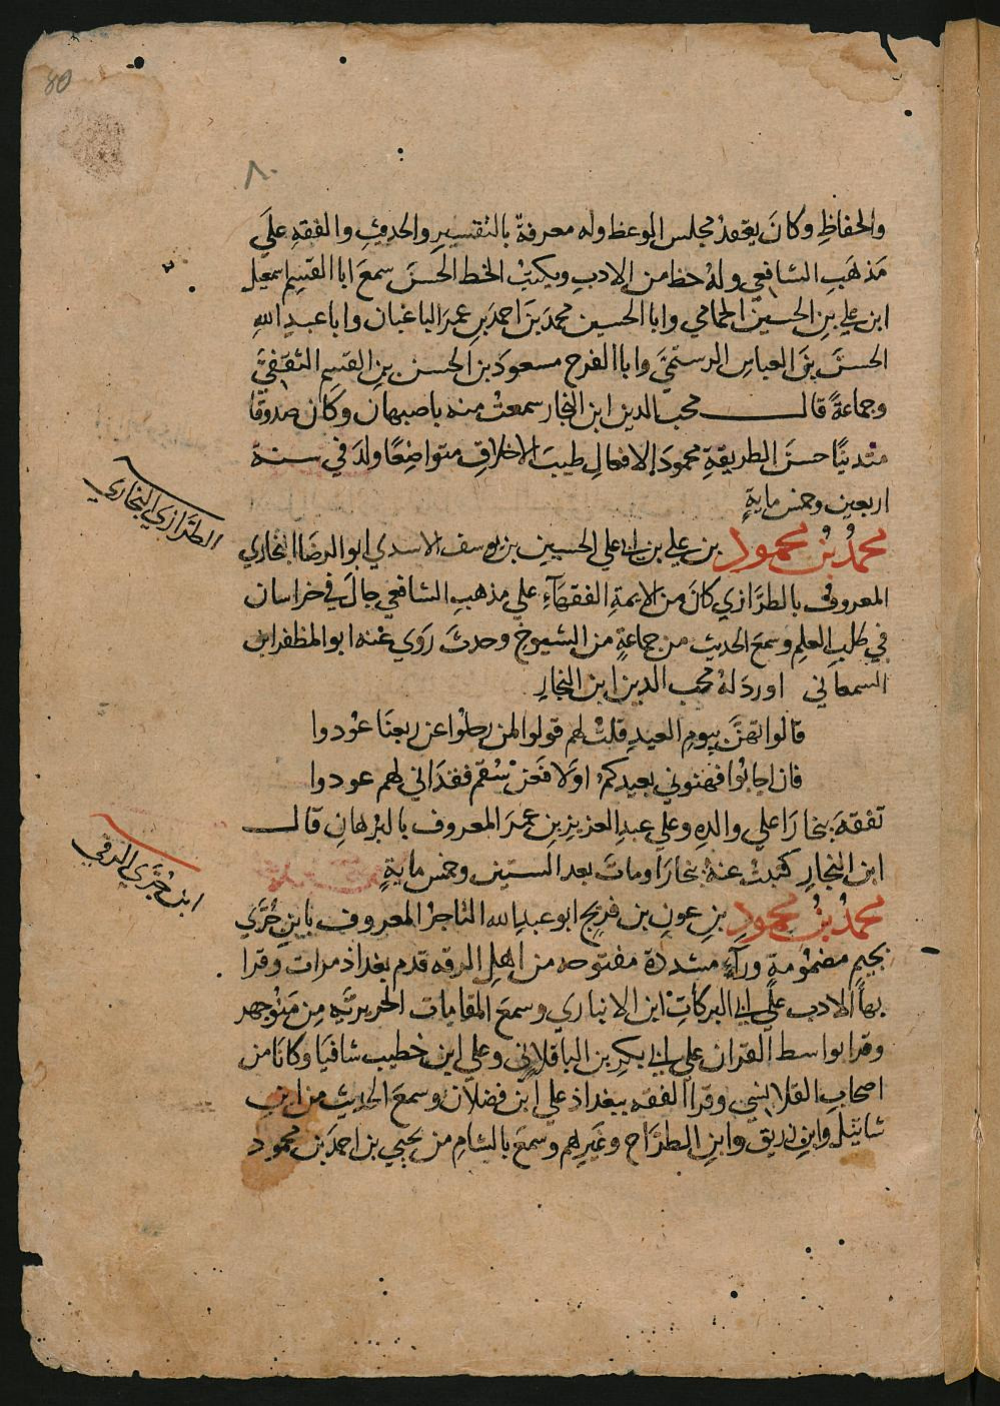 80
٨٠
والحفاظِ وكانَ يعقدُ مجلس الوعظ وله معرفةٌ بالتفسيرِ والحديثِ والفقهِ علَى
مَذهَبِ الشافعي ولهُ حظ من الادبِ ويكتبُ الخط الحَسنَ سمعَ ابا القسِم اسمعيل
ابن علي بنِ الحسينْ الحمامي وابا الحسين محمدَ بنَ احمدَ بنِ عمرَ الباغبان وابا عبدِ اللهِ
الحسنَ بنَ العباسِ الرستميَّ وابا الفرج مسعودَ بن الحسن بنِ القسِم الثقفيَّ
وجماعةً قال محب الدين ابن النجار سمعتُ منه باصبهان وكان صدوقا
متدينًا حسنَ الطريقةِ محمودَ الافعالِ طيبَ الاخلاقِ متواضِعًا ولدَ في سنة
اربعين وخمس مايةٍ
الطرازي البخاري
محمدُ بنُ محمود بن علي بن ابي علي الحسين بن يوسف الاسدي ابو الرضا البخاري
المعروف بالطرازي كانَ من الايمةِ الفقهآءِ علي مذهبِ الشافعي جالَ في خراسان
في طلبِ العلمِ وسمعَ الحديث من جماعةٍ من الشيوخ وحدثَ رَوَي عنه ابو المظفر ابن
السمعاني اوردَ لهُ محب الدين ابن النجارِ
قالوا تهنَّ بيومِ العيدِ قلتُ لهم قولوا لمن رحلوا عن ربعنا عودوا
فان اجابوا فهنوني بعيدكمُ اولا فنحن سقم فقداني لهم عودوا
تفقهَ ببخارَا علي والدِهِ وعلي عبدِ العزيزِ بنِ عمرَ المعروف بالبرهانِ قال
ابن النجارِ كتبتُ عنهُ ببخارَا وماتَ بعد الستين وخمس مايةٍ
ابن جُرَّي الرقي
محمدُ بنُ محمودِ بنِ عونِ بن فريج ابو عبدِ الله التاجرُ المعروف بابنِ جُرَّي
بجيمٍ مضمُومةٍ ورآءٍ مشددة مفتوحه من اهلِ الرقه قدم بغداذ مراتٍ وقرا
بها الادب علَي ابي البركاتِ ابن الانباري وسمعَ المقامات الحريريَّه مِن مَنُوجهر
وقرا بواسط القران علي ابي بكر بن الباقلاني وعلي ابن خطيب شافيا وكانَا من
اصحابِ القلانسي وقرا الفقه ببغداذ علي ابن فضلان وسمعَ الحديث من ابن
شاتيل وابن زريق وابنِ الطرَّاح وغَيرِهم وسمعَ بالشامِ من يحيي بن احمدَ بن محمود